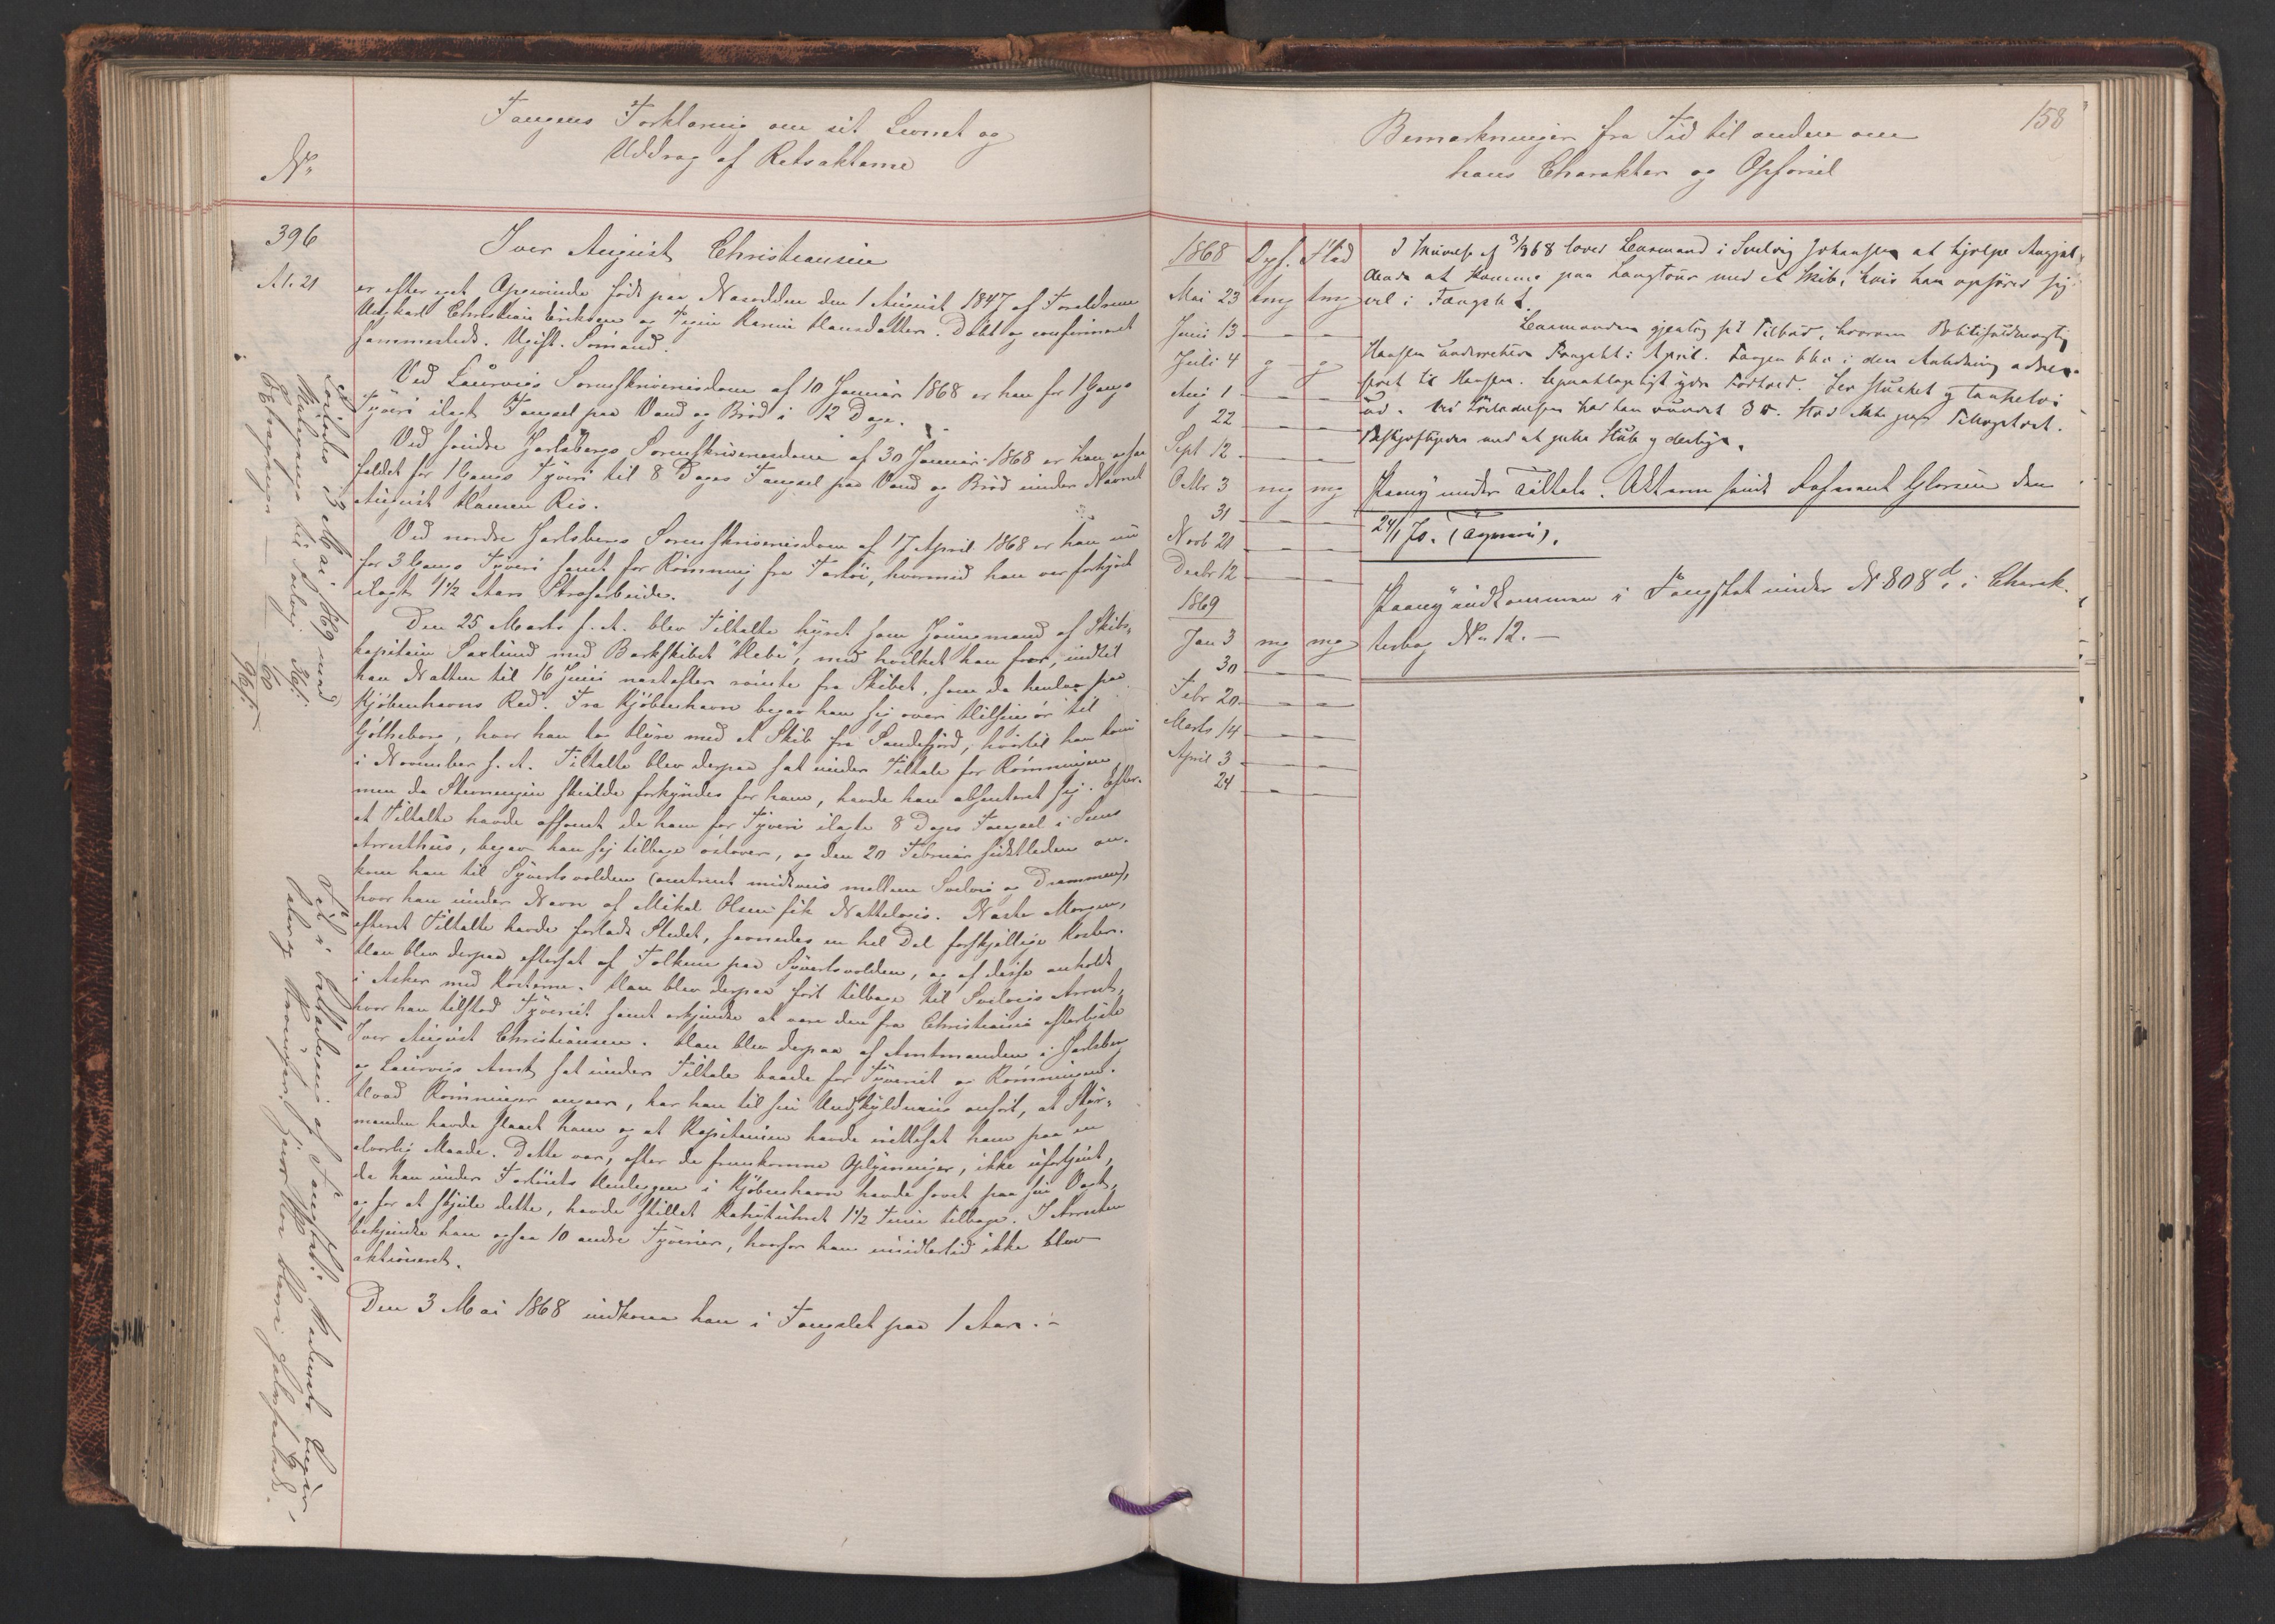 Fangens Forklaring om sit Levnet og
Uddrag af Retsakterne
No
396
Al. 21
Iver August Christiansen
er efter eget Opgivende født paa Næsodden den 1 August 1847 af Forældrene
Ungkarl Christian Eriksen og Pigen Karen Hansdatter. Døbt og confirmeret
sammesteds. Ugift. Sømand.
Ved Laurvigs Sorenskriverisdom af 10 Januar 1868 er han for 1 Gangs
Tyveri ilagt Fængsel paa Vand og Brød i 12 Dage.
Ved søndre Jarlsbergs Sorenskriverisdom af 30 Januar 1868 er han ogsaa
fældet for 1 Gangs Tyveri til 8 Dages Fængsel paa Vand og Brød under Navnet
August Hansen Ris.
Ved nordre Jarlsbergs Sorenskriverisdom af 17 April 1868 er han nu
for 3 Gangs Tyveri samt for Rømning fra Fartøi, hvormed han var forhyret
ilagt 1½ Aars Strafarbeide.
Den 25 Marts f. A. blev Tiltalte hyret som Jungmand af Skibs-
kapitain Saxlund med Barkskibet "Hebe", med hvilket han foer, indtil
han Natten til 16 Juni næstefter rømte fra Skibet, som da henlaa paa
Kjøbenhavns Red. Fra Kjøbenhavn begav han sig over Helsingør til
Gøtheborg, hvor han tog Hyre med et Skib fra Sandefjord, hvortil han kom
i November f. A. Tiltalte blev derpaa sat under Tiltale for Rømningen,
men da Stevningen skulde forkyndes for ham, havde han absenteret sig. Efter-
at Tiltalte havde afsonet de ham for Tyveri ilagte 8 Dages Fængsel i Sems
Arresthus, begav han sig tilbage østover, og den 20 Februar sidstleden an-
kom han til Syvertsvolden (omtrent midtveis mellem Svelvig og Drammen),
hvor han under Navn af Mikal Olsen fik Nattelogis. Næste Morgen,
efterat Tiltalte havde forladt Stedet, savnedes en hel Del forskjellige Koster.
Han blev derpaa eftersat af Folkene paa Syvertsvolden, og af disse anholdt
i Asker med Kosterne. Han blev derpaa ført tilbage til Svelvigs Arrest,
hvor han tilstod Tyveriet samt erkjendte at være den fra Christiania efterlyste
Iver August Christiansen. Han blev derpaa af Amtmanden i Jarlsberg
og Laurvigs Amt sat under Tiltale baade for Tyveriet og Rømningen.
Hvad Rømningen angaar, har han til sin Undskyldning anført, at Styr-
manden havde slaaet ham og at Kapitainen havde irettesat ham paa en
alvorlig Maade. Dette var, efter de fremkomne Oplysninger, ikke ufortjent,
da han under Fartøiets Henliggen i Kjøbenhavn havde sovet paa sin Vagt,
og for at skjule dette, havde stillet Kahytsuhret 1½ Time tilbage. I Arresten
bekjendte han ogsaa 10 andre Tyverier, hvorfor han imidlertid ikke blev
aktioneret.
Den 3 Mai 1868 indkom han i Fængslet paa 1 Aar. –
Løslodes 3 Mai 1869 med
Reisepenge til Svelvig
Extrapenge
Feil i
158
Bemærkninger fra Tid til anden om
hans Charakter og Opførsel
1868 Opf. Flid
Mai 23 tmg tmg
Juni 13 – –
Juli 4 g g
Aug 1 – –
22 – –
Sept 12 – –
Octbr 3 mg mg
31 – –
Novb 21 – –
Decbr 12 – –
1869
Jan 3 mg mg
30 – –
Febr 20 – –
Marts 14 – –
April 3 – –
24 – –
I Skrivelse af 3/9 68 lover Lensmand i Svelvig Johansen at hjelpe Angjæl-
dende at komme paa Langtour med et Skib, hvis han opfører sig
vel i Fængslet.
Lensmanden gjentog sit Tilbud, hvorom Politifuldmægtig
Hansen underrettede Fængslet i April. Fangen blev i den Anledning adres-
seret til Hansen.
Paany under Tiltale. Akterne sendt den
24/1 70.
Paany indkommen i Fængslet under No 808 d. i Charak-
terbog No 12. –